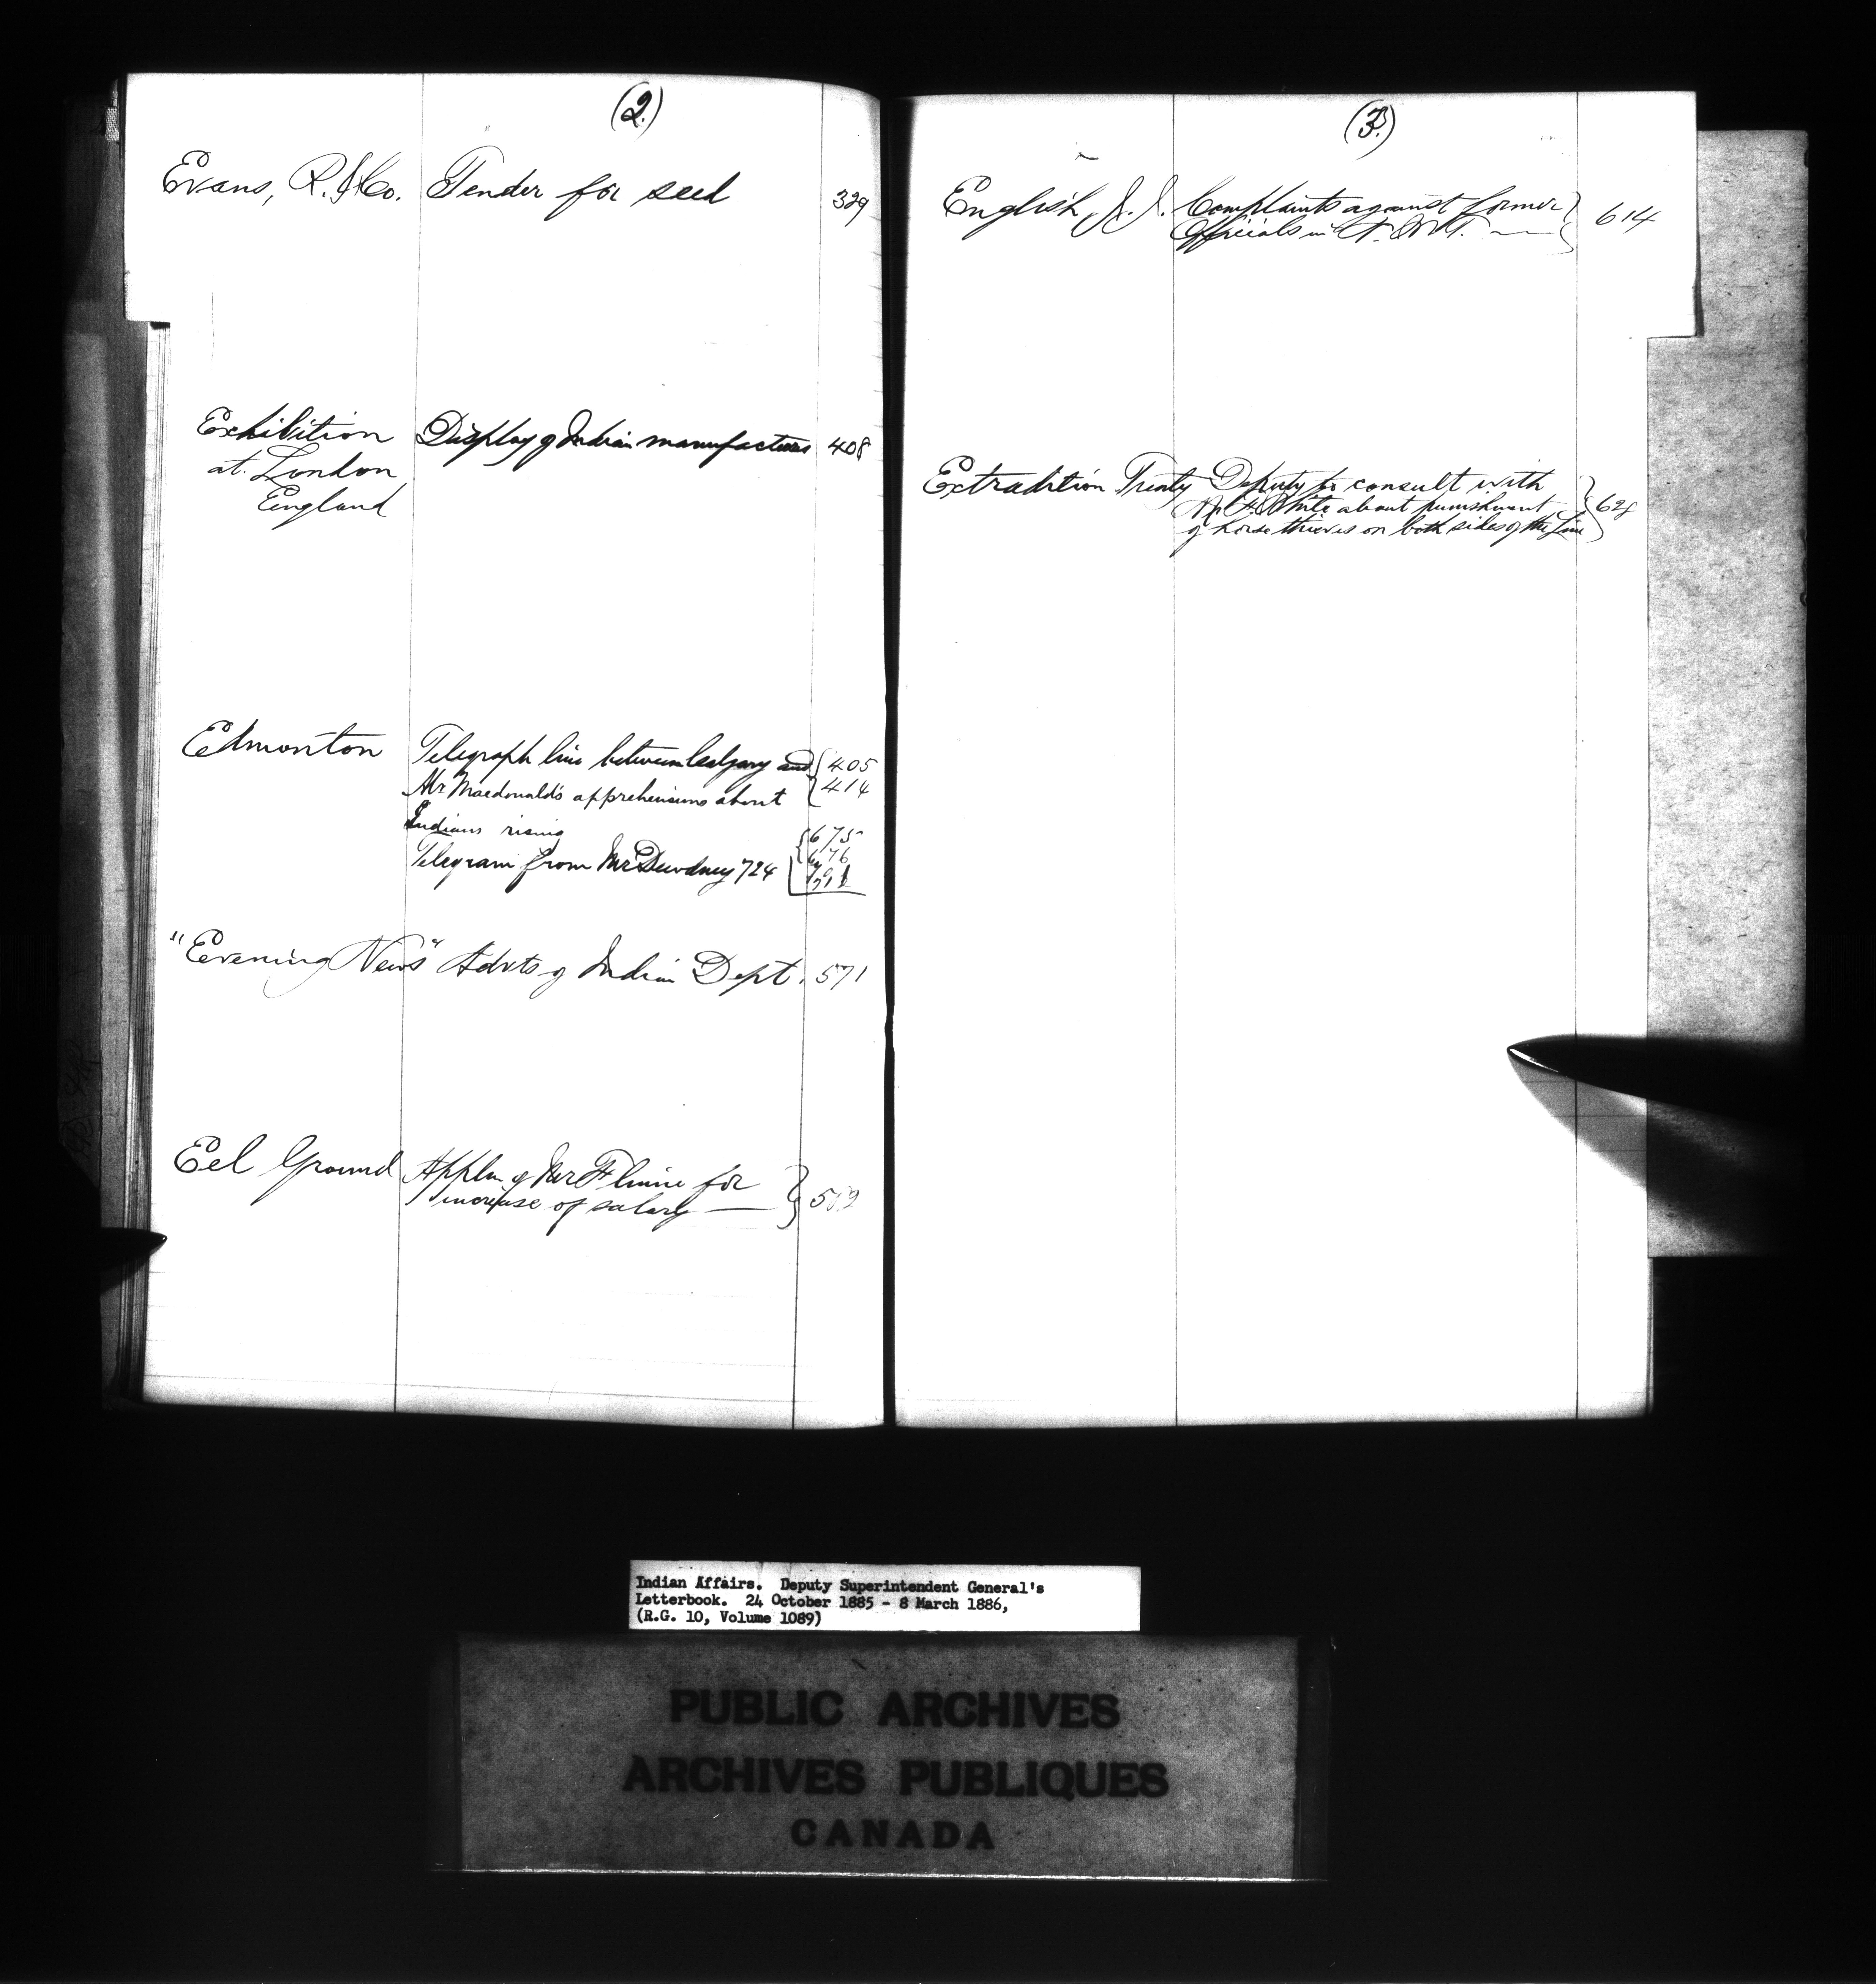 (2.)
Evans, R. & Co. Tender for seed 329
Exhibition Display of Indian manufactures 408
at London
England
Edmonton Telegraph line between Calgary and 405
Mr Macdonald's apprehensions about 414
Indians rising 675
Telegram from Mr Dewdney 724 676
"Evening News" Advts of Indian Dept. 571
Eel Ground Appln of Mr for
increase of salary
(3.)
English, J. J. Complaints against former 614
Officials in N.W.T.
Extradition Treaty Deputy to consult with
Mr F. White about punishment 628
of horse thieves on both sides of the Line
Indian Affairs. Deputy Superintendent General's
Letterbook. 24 October 1885 - 8 March 1886,
(R.G. 10, Volume 1089)
PUBLIC ARCHIVES
ARCHIVES PUBLIQUES
CANADA